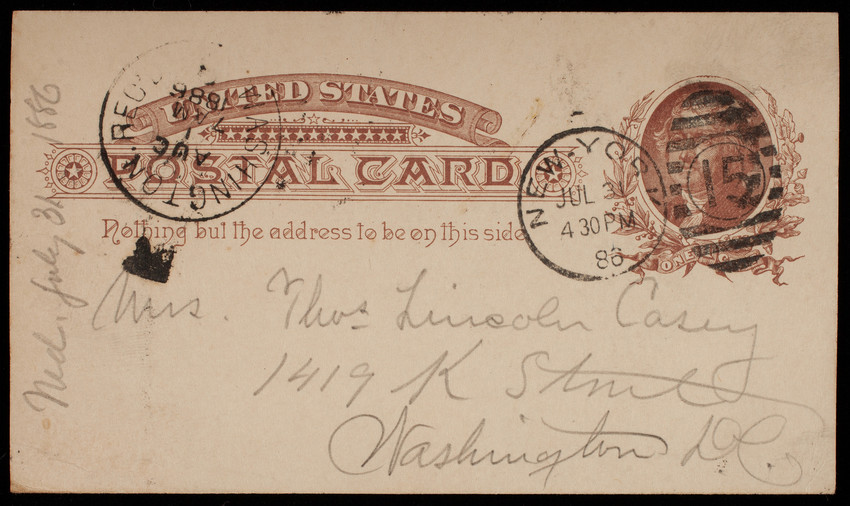 UNITED STATES
POSTAL CARD
Nothing but the address to be on this side.
WASHINGTON. REC'D.
AUG 1
1886
NEW-YORK
JUL 31
4 30 PM
86
15
ONE
Mrs. Thos Lincoln Casey
1419 K Street
Washington D.C.
Ned. July 31 1886